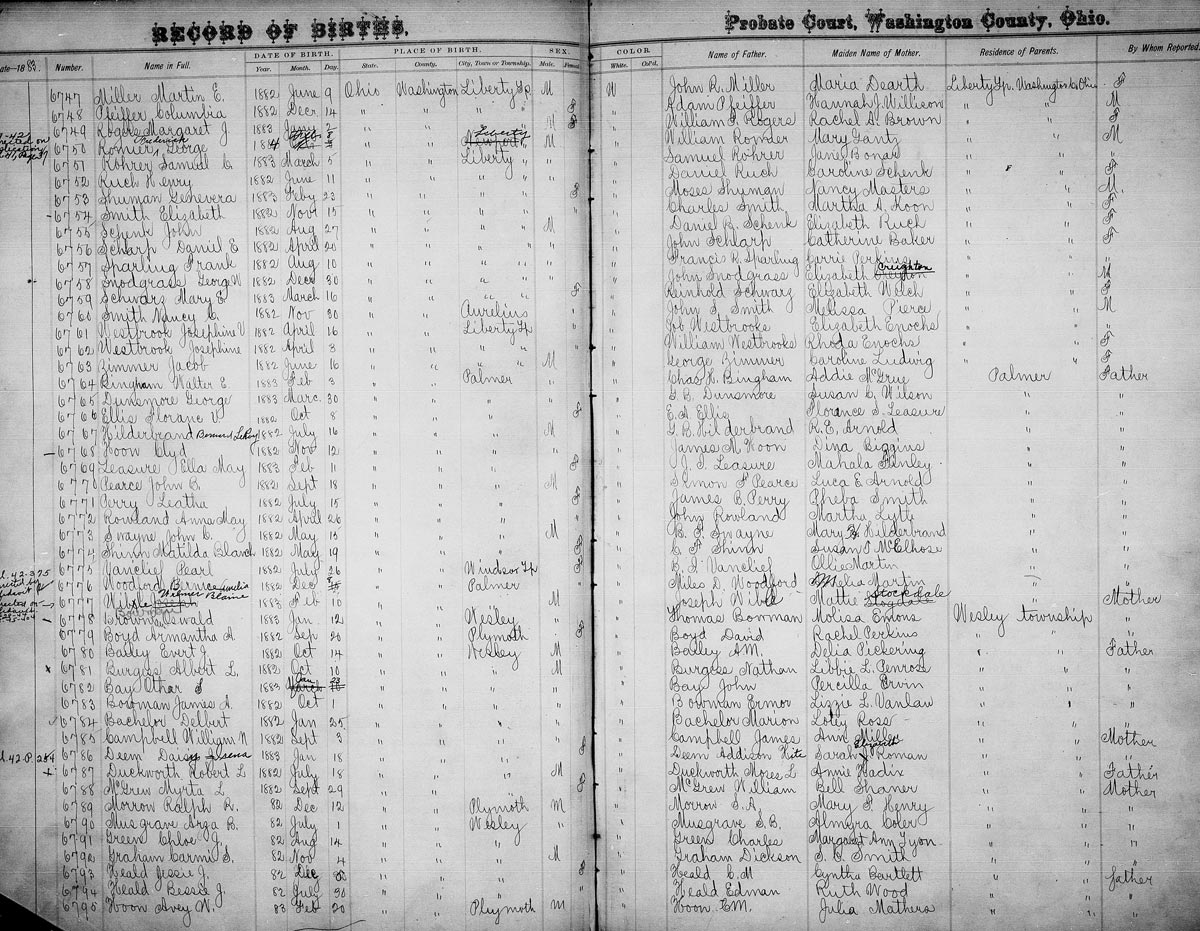 RECORD OF BIRTHS,
Probate Court, Washington County, Ohio.
Number. Name in Full. DATE OF BIRTH. Year. Month. Day. PLACE OF BIRTH. State. County. City, Town or Township. SEX. Male. Female. COLOR. White. Col'd. Name of Father. Maiden Name of Mother. Residence of Parents. By Whom Reported.
6747 Miller Martin E. 1882 June 9 Ohio Washington Liberty Tp M W John R. Miller Maria Dearth Liberty Tp. Washington Co. Ohio F
6748 Pfeiffer Columbia 1882 Decr 14 " " " F " Adam Pfeiffer Hannah J. Willison " " M
6749 Rogers Margaret J 1883 2 " " " F " William P. Rogers Rachel A. Brown " " F
6750 Romer George Frederick " " Liberty Newport M " William Romer Mary Gantz " " M
6751 Rohrer Samuel C 1883 March 5 " " Liberty " " Samuel Rohrer Jane Bonar " " "
6752 Ruch Henry 1882 June 11 " " " " " Daniel Ruch Caroline Schenk " " F
6753 Shuman Genevera 1883 Feby 23 " " " F " Moses Shuman Nancy Masters " " M.
6754 Smith Elizabeth 1882 Novr 15 " " " " " Charles Smith Martha A. Koon " " F
6755 Schenk John 1882 Aug 27 " " " M " Daniel B. Schenk Elizabeth Ruch " " F
6756 Scharp Daniel E 1882 April 20 " " " " " John Schlarp Catherine Baker " " F
6757 Sparling Frank 1882 Aug 10 " " " " " Francis K. Sparling Carrie Perkins " " "
6758 Snodgrass George W 1882 Decr 30 " " " " " John Snodgrass Elizabeth Creighton " " M
6759 Schwarz Mary E 1883 March 16 " " " F " Reinhold Schwarz Elizabeth Welch " " F
6760 Smith Nancy C. 1882 Nov 30 " " Aurelius " " John S. Smith Melissa Pierce " " M
6761 Westbrook Josephine V 1882 April 16 " " Liberty Tp " " Job Westbrooke Elizabeth Enochs " " "
6762 Westbrook Josephine 1882 April 3 " " " " " William Westbrooke Rhoda Enochs " " F
6763 Zimmer Jacob 1882 June 16 " " " M " George Zimmer Caroline Ludwig " " F
6764 Bingham Walter E 1883 Feb 3 " " Palmer " " Chas. H. Bingham Addie McGrue Palmer Father
6765 Dunsmore George 1883 Marc. 30 " " " " " G. B. Dunsmore Susan C. Wilson " "
6766 Ellis Florance V. 1882 Oct 8 " " " F " E. A Ellis Florance S. Leasure " "
6767 Hilderbrand Bernard LeRoy 1882 July 16 " " " M " G. B. Hilderbrand R. E. Arnold " "
6768 Hoon Clyd 1882 Nov 12 " " " " " James M. Hoon Dina Biggins " "
6769 Leasure Ella May 1883 Feb 11 " " " F " J. I. Leasure Mahala Henley " "
6770 Pearce John B. 1882 Sept 18 " " " M " Simon P Pearce Luca E Arnold " "
6771 Perry Leatha 1882 July 15 " " " F " James B. Perry Pheba Smith " "
6772 Rowland Anna May 1882 April 26 " " " " " John Rowland Martha Lytte " "
6773 Swayne John C. 1882 May 15 " " " M " B. F. Swayne Mary Hilderbrand " "
6774 Shinn Matilda Blanch 1882 May 19 " " " F " C. A Shinn Susan P McElhose " "
6775 Vanclief Pearl 1882 July 26 " " Windsor Tp F " B. I. Vanclief Ollie Martin " "
6776 Woodford Bernice Amelia 1882 Dec 8 " " Palmer " " Miles D. Woodford Melia Martin " "
6777 Wible Wilmer Blaine 1883 Feb 10 " " " M " Joseph Wible Mattie Stockdale " Mother
6778 Brown Oswald 1883 Jan. 12 " " Wesley " " Thomas Bowman Molisa Emons Wesley township "
6779 Boyd Armantha A 1882 Sep 20 " " Plymoth F " Boyd David Rachel Perkins " " "
6780 Bailey Evert J. 1882 Oct 14 " " Wesley M " Bailey AM. Delia Pickering " " Father
6781 Burgess Albert L. 1882 Oct 10 " " " M " Burgess Nathan Libbie L. Penrose " " "
6782 Bay Othar S 1883 Jan. 23 March " " " " " Bay John Percilla Ervin " " "
6783 Bowman James A. 1882 Oct 1 " " " " " Bowman Ermor Lizzie L. Vanlaw " " "
6784 Bachelor Delbert 1882 Jan 25 " " " " " Bachelor Marion Loley Rose " " "
6785 Campbell William N 1882 Sept 3 " " " " " Campbell James Ann Miller " " Mother
6786 Deem Daisy 1883 Jan 18 " " " F " Deem Addison Kite Sarah Elizabeth Roman " " "
6787 Duckworth Robert L 1882 July 18 " " " M " Duckworth Moses L Annie Hadix " " Father
6788 McGrew Myrta L 1882 Sept 29 " " " F " McGrew William Bell Shaner " " Mother
6789 Morrow Ralph R. 82 Dec 12 " " Plymoth M " Morrow S. A. Mary P. Henry " " "
6790 Musgrave Arza B. 82 July 1 " " Wesley " " Musgrave S. B. Almyra Coler " " "
6791 Green Chloe J. 82 Aug 14 " " " " Green Charles Margaret Ann Lyon " " "
6792 Graham Carmi S. 82 Nov 4 " " " M " Graham Dickson S. C. Smith " " "
6793 Heald Jessie J. 82 Dec " " " F " Heald C. M Cyntha Bartlett " " father
6794 Heald Bessie J. 82 July 30 " " " " " Heald Edman Ruth Wood " " "
6795 Hoon Avey W. 83 Feb 20 " " Plymoth M " Hoon E.M. Julia Mathers " " "